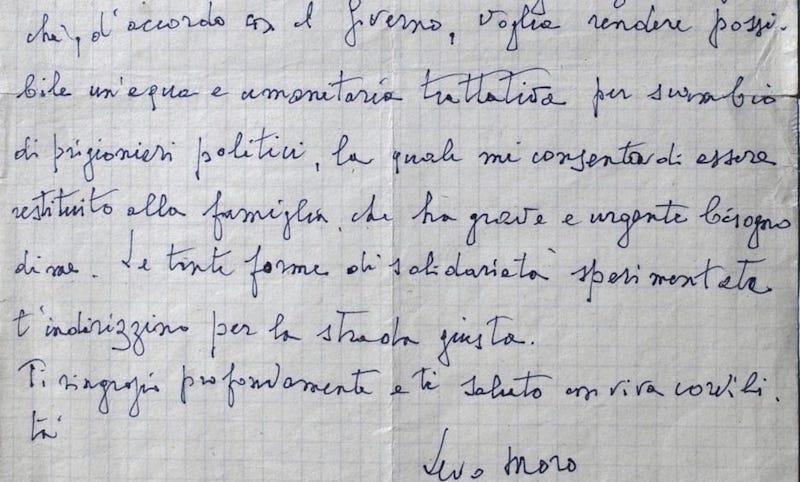 chè, d'accordo con il Governo, voglia rendere possi-
bile un'equa e umanitaria trattativa per scambio
di prigionieri politici, la quale mi consenta di essere
restituito alla famiglia, che ha grave e urgente bisogno
di me. Le tante forme di solidarietà sperimentate
t'indirizzino per la strada giusta.
Ti ringrazio profondamente e ti saluto con viva cordiali-
tà
Moro